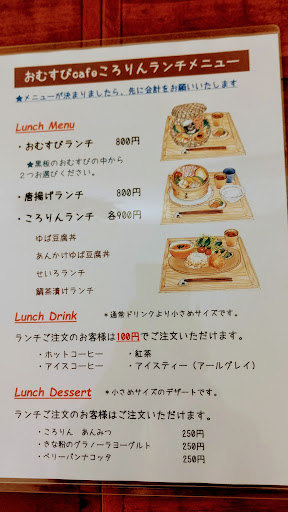 おむすびcafeころりんランチメニュー
★メニューが決まりましたら、先に会計をお願いいたします
Lunch Menu
・おむすびランチ 800円
★黒板のおむすびの中から
2つお選びください。
・唐揚げランチ 800円
・ころりんランチ 各900円
ゆば豆腐丼
あんかけゆば豆腐丼
せいろランチ
鯛茶漬けランチ
Lunch Drink *通常ドリンクより小さめサイズです。
ランチご注文のお客様は100円でご注文いただけます。
・ホットコーヒー ・紅茶
・アイスコーヒー ・アイスティー（アールグレイ）
Lunch Dessert *小さめサイズのデザートです。
ランチご注文のお客様はご注文いただけます。
・ころりん あんみつ 250円
・きな粉のグラノーラヨーグルト 250円
・ベリーパンナコッタ 250円